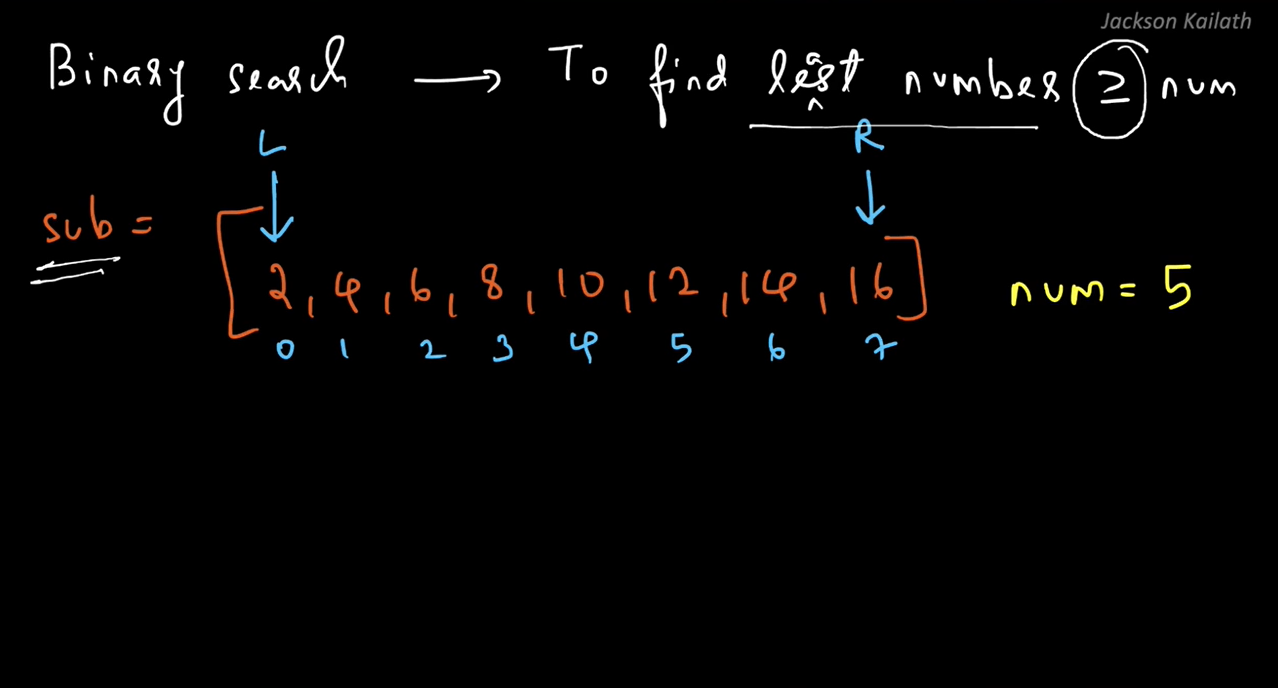 Jackson Kailath
Binary search → To find least number ≥ num
L R
sub = [2, 4, 6, 8, 10, 12, 14, 16] num = 5
0 1 2 3 4 5 6 7